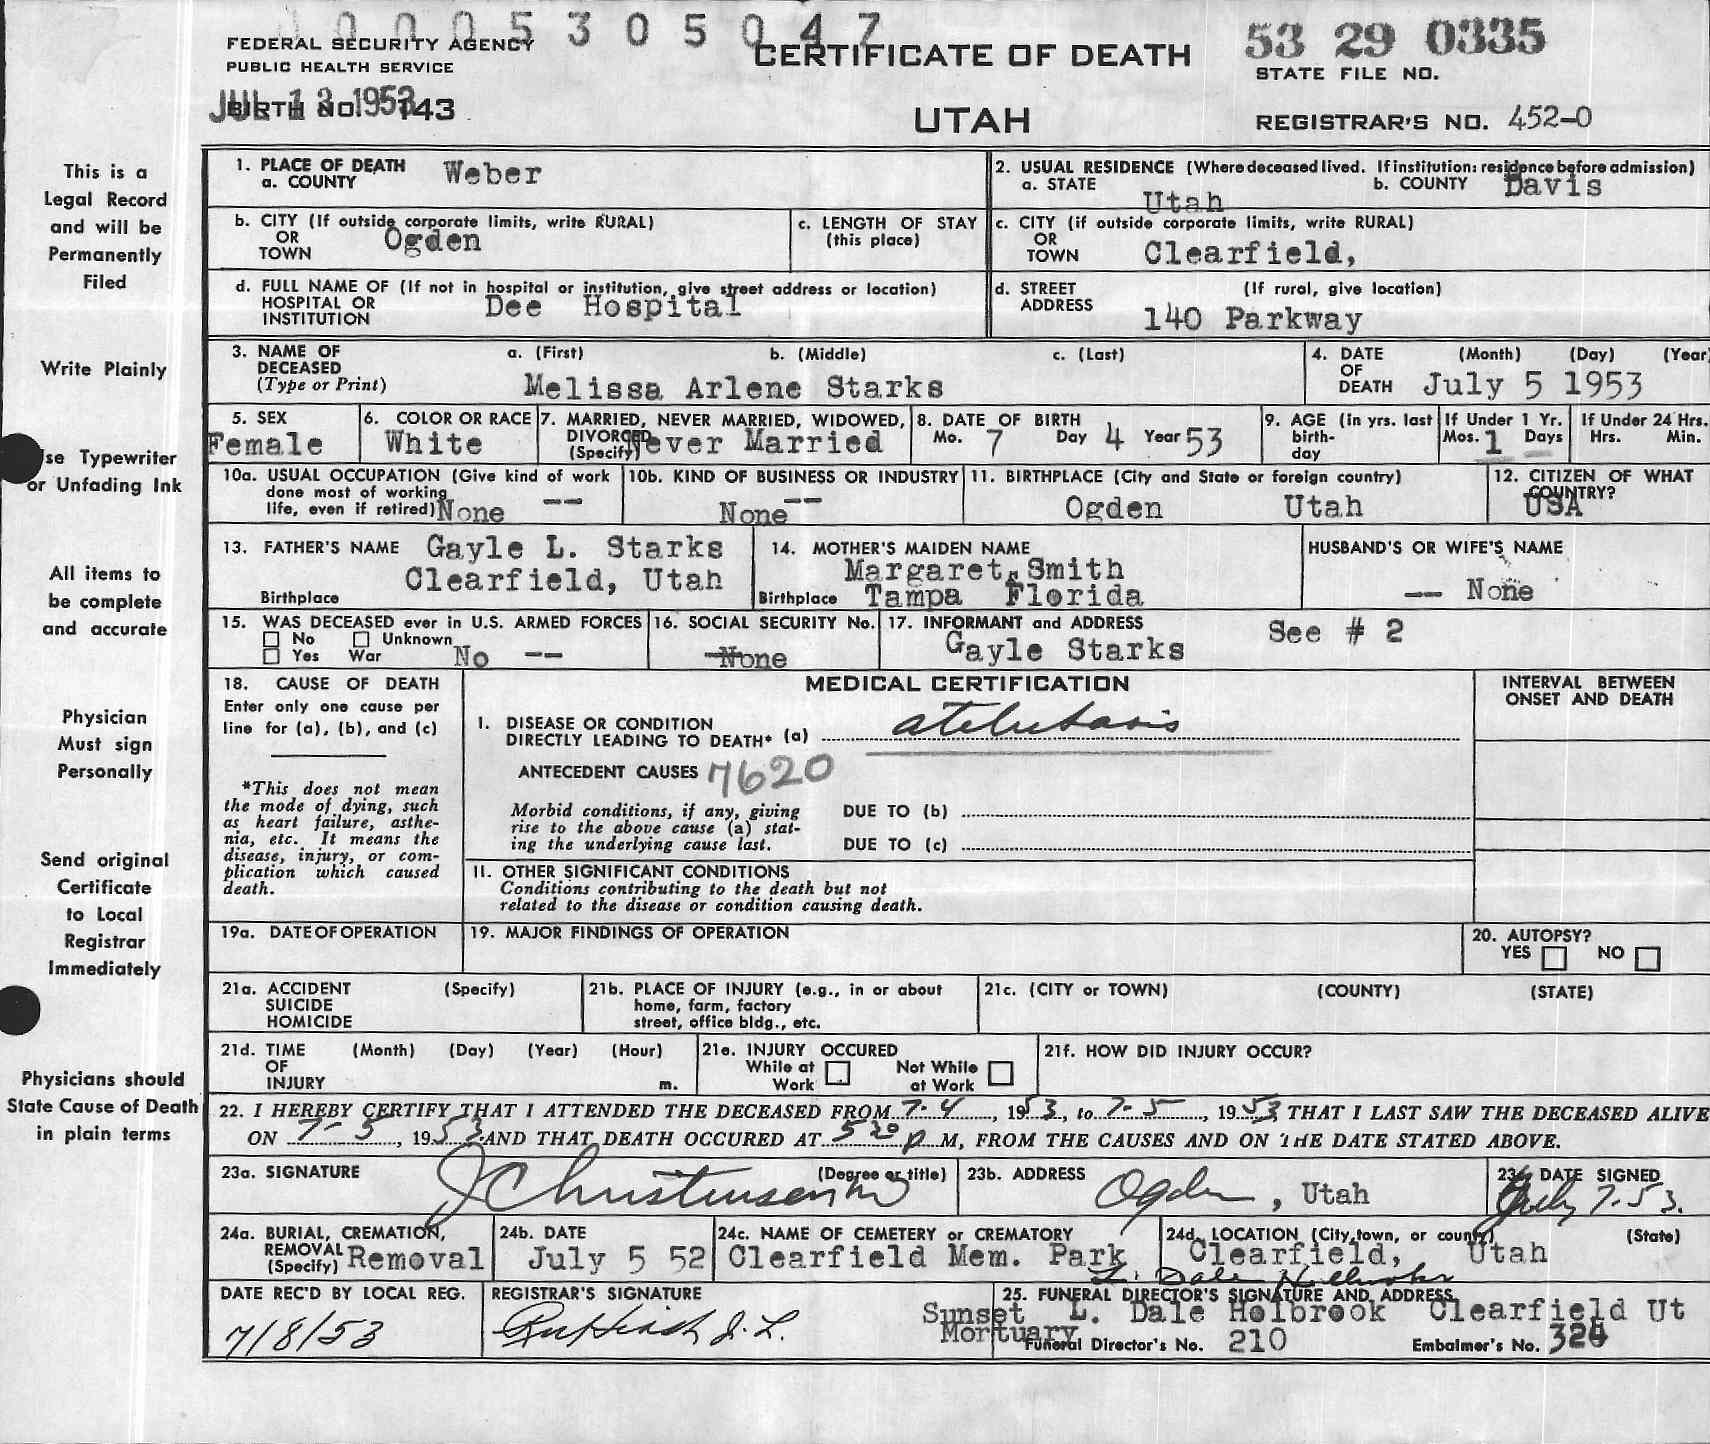 0005305047
FEDERAL SECURITY AGENCY
PUBLIC HEALTH SERVICE
CERTIFICATE OF DEATH
53 29 0335
STATE FILE NO.
JUL 13 1953
BIRTH NO. 143
UTAH
REGISTRAR'S NO. 452-0
This is a
Legal Record
and will be
Permanently
Filed
Write Plainly
Use Typewriter
or Unfading Ink
All items to
be complete
and accurate
Physician
Must sign
Personally
Send original
Certificate
to Local
Registrar
Immediately
Physicians should
State Cause of Death
in plain terms
1. PLACE OF DEATH
a. COUNTY Weber
2. USUAL RESIDENCE (Where deceased lived. If institution: residence before admission)
a. STATE Utah b. COUNTY Davis
b. CITY (If outside corporate limits, write RURAL)
OR
TOWN Ogden
c. LENGTH OF STAY
(this place)
c. CITY (if outside corporate limits, write RURAL)
OR
TOWN Clearfield,
d. FULL NAME OF (If not in hospital or institution, give street address or location)
HOSPITAL OR
INSTITUTION Dee Hospital
d. STREET (If rural, give location)
ADDRESS 140 Parkway
3. NAME OF a. (First) b. (Middle) c. (Last)
DECEASED
(Type or Print) Melissa Arlene Starks
4. DATE (Month) (Day) (Year)
OF
DEATH July 5 1953
5. SEX
Female
6. COLOR OR RACE
White
7. MARRIED, NEVER MARRIED, WIDOWED,
DIVORCED
(Specify) Never Married
8. DATE OF BIRTH
Mo. 7 Day 4 Year 53
9. AGE (in yrs. last
birth-
day
If Under 1 Yr.
Mos. 1 Days
If Under 24 Hrs.
Hrs. Min.
10a. USUAL OCCUPATION (Give kind of work
done most of working
life, even if retired) None --
10b. KIND OF BUSINESS OR INDUSTRY
None --
11. BIRTHPLACE (City and State or foreign country)
Ogden Utah
12. CITIZEN OF WHAT
COUNTRY?
USA
13. FATHER'S NAME Gayle L. Starks
Clearfield, Utah
Birthplace
14. MOTHER'S MAIDEN NAME
Margaret Smith
Birthplace Tampa Florida
HUSBAND'S OR WIFE'S NAME
-- None
15. WAS DECEASED ever in U.S. ARMED FORCES
No Unknown
Yes War No --
16. SOCIAL SECURITY No.
None
17. INFORMANT and ADDRESS See # 2
Gayle Starks
18. CAUSE OF DEATH
Enter only one cause per
line for (a), (b), and (c)
*This does not mean
the mode of dying, such
as heart failure, asthe-
nia, etc. It means the
disease, injury, or com-
plication which caused
death.
MEDICAL CERTIFICATION
INTERVAL BETWEEN
ONSET AND DEATH
I. DISEASE OR CONDITION
DIRECTLY LEADING TO DEATH* (a) atelectasis
ANTECEDENT CAUSES 7620
Morbid conditions, if any, giving
rise to the above cause (a) stat-
ing the underlying cause last.
DUE TO (b)
DUE TO (c)
II. OTHER SIGNIFICANT CONDITIONS
Conditions contributing to the death but not
related to the disease or condition causing death.
19a. DATE OF OPERATION
19. MAJOR FINDINGS OF OPERATION
20. AUTOPSY?
YES NO
21a. ACCIDENT (Specify)
SUICIDE
HOMICIDE
21b. PLACE OF INJURY (e.g., in or about
home, farm, factory
street, office bldg., etc.
21c. (CITY or TOWN) (COUNTY) (STATE)
21d. TIME (Month) (Day) (Year) (Hour)
OF
INJURY m.
21e. INJURY OCCURED
While at Not While
Work at Work
21f. HOW DID INJURY OCCUR?
22. I HEREBY CERTIFY THAT I ATTENDED THE DECEASED FROM 7-4, 1953, to 7-5, 1953, THAT I LAST SAW THE DECEASED ALIVE
ON 7-5, 1953 AND THAT DEATH OCCURED AT 5 20 p M, FROM THE CAUSES AND ON THE DATE STATED ABOVE.
23a. SIGNATURE (Degree or title)
J Christensen MD
23b. ADDRESS
Ogden, Utah
23c. DATE SIGNED
July 7-53.
24a. BURIAL, CREMATION,
REMOVAL
(Specify) Removal
24b. DATE
July 5 52
24c. NAME OF CEMETERY or CREMATORY
Clearfield Mem. Park
24d. LOCATION (City, town, or county) (State)
Clearfield, Utah
L. Dale Holbrook
DATE REC'D BY LOCAL REG.
7/8/53
REGISTRAR'S SIGNATURE
25. FUNERAL DIRECTOR'S SIGNATURE AND ADDRESS
Sunset L. Dale Holbrook Clearfield Ut
Mortuary
Funeral Director's No. 210 Embalmer's No.